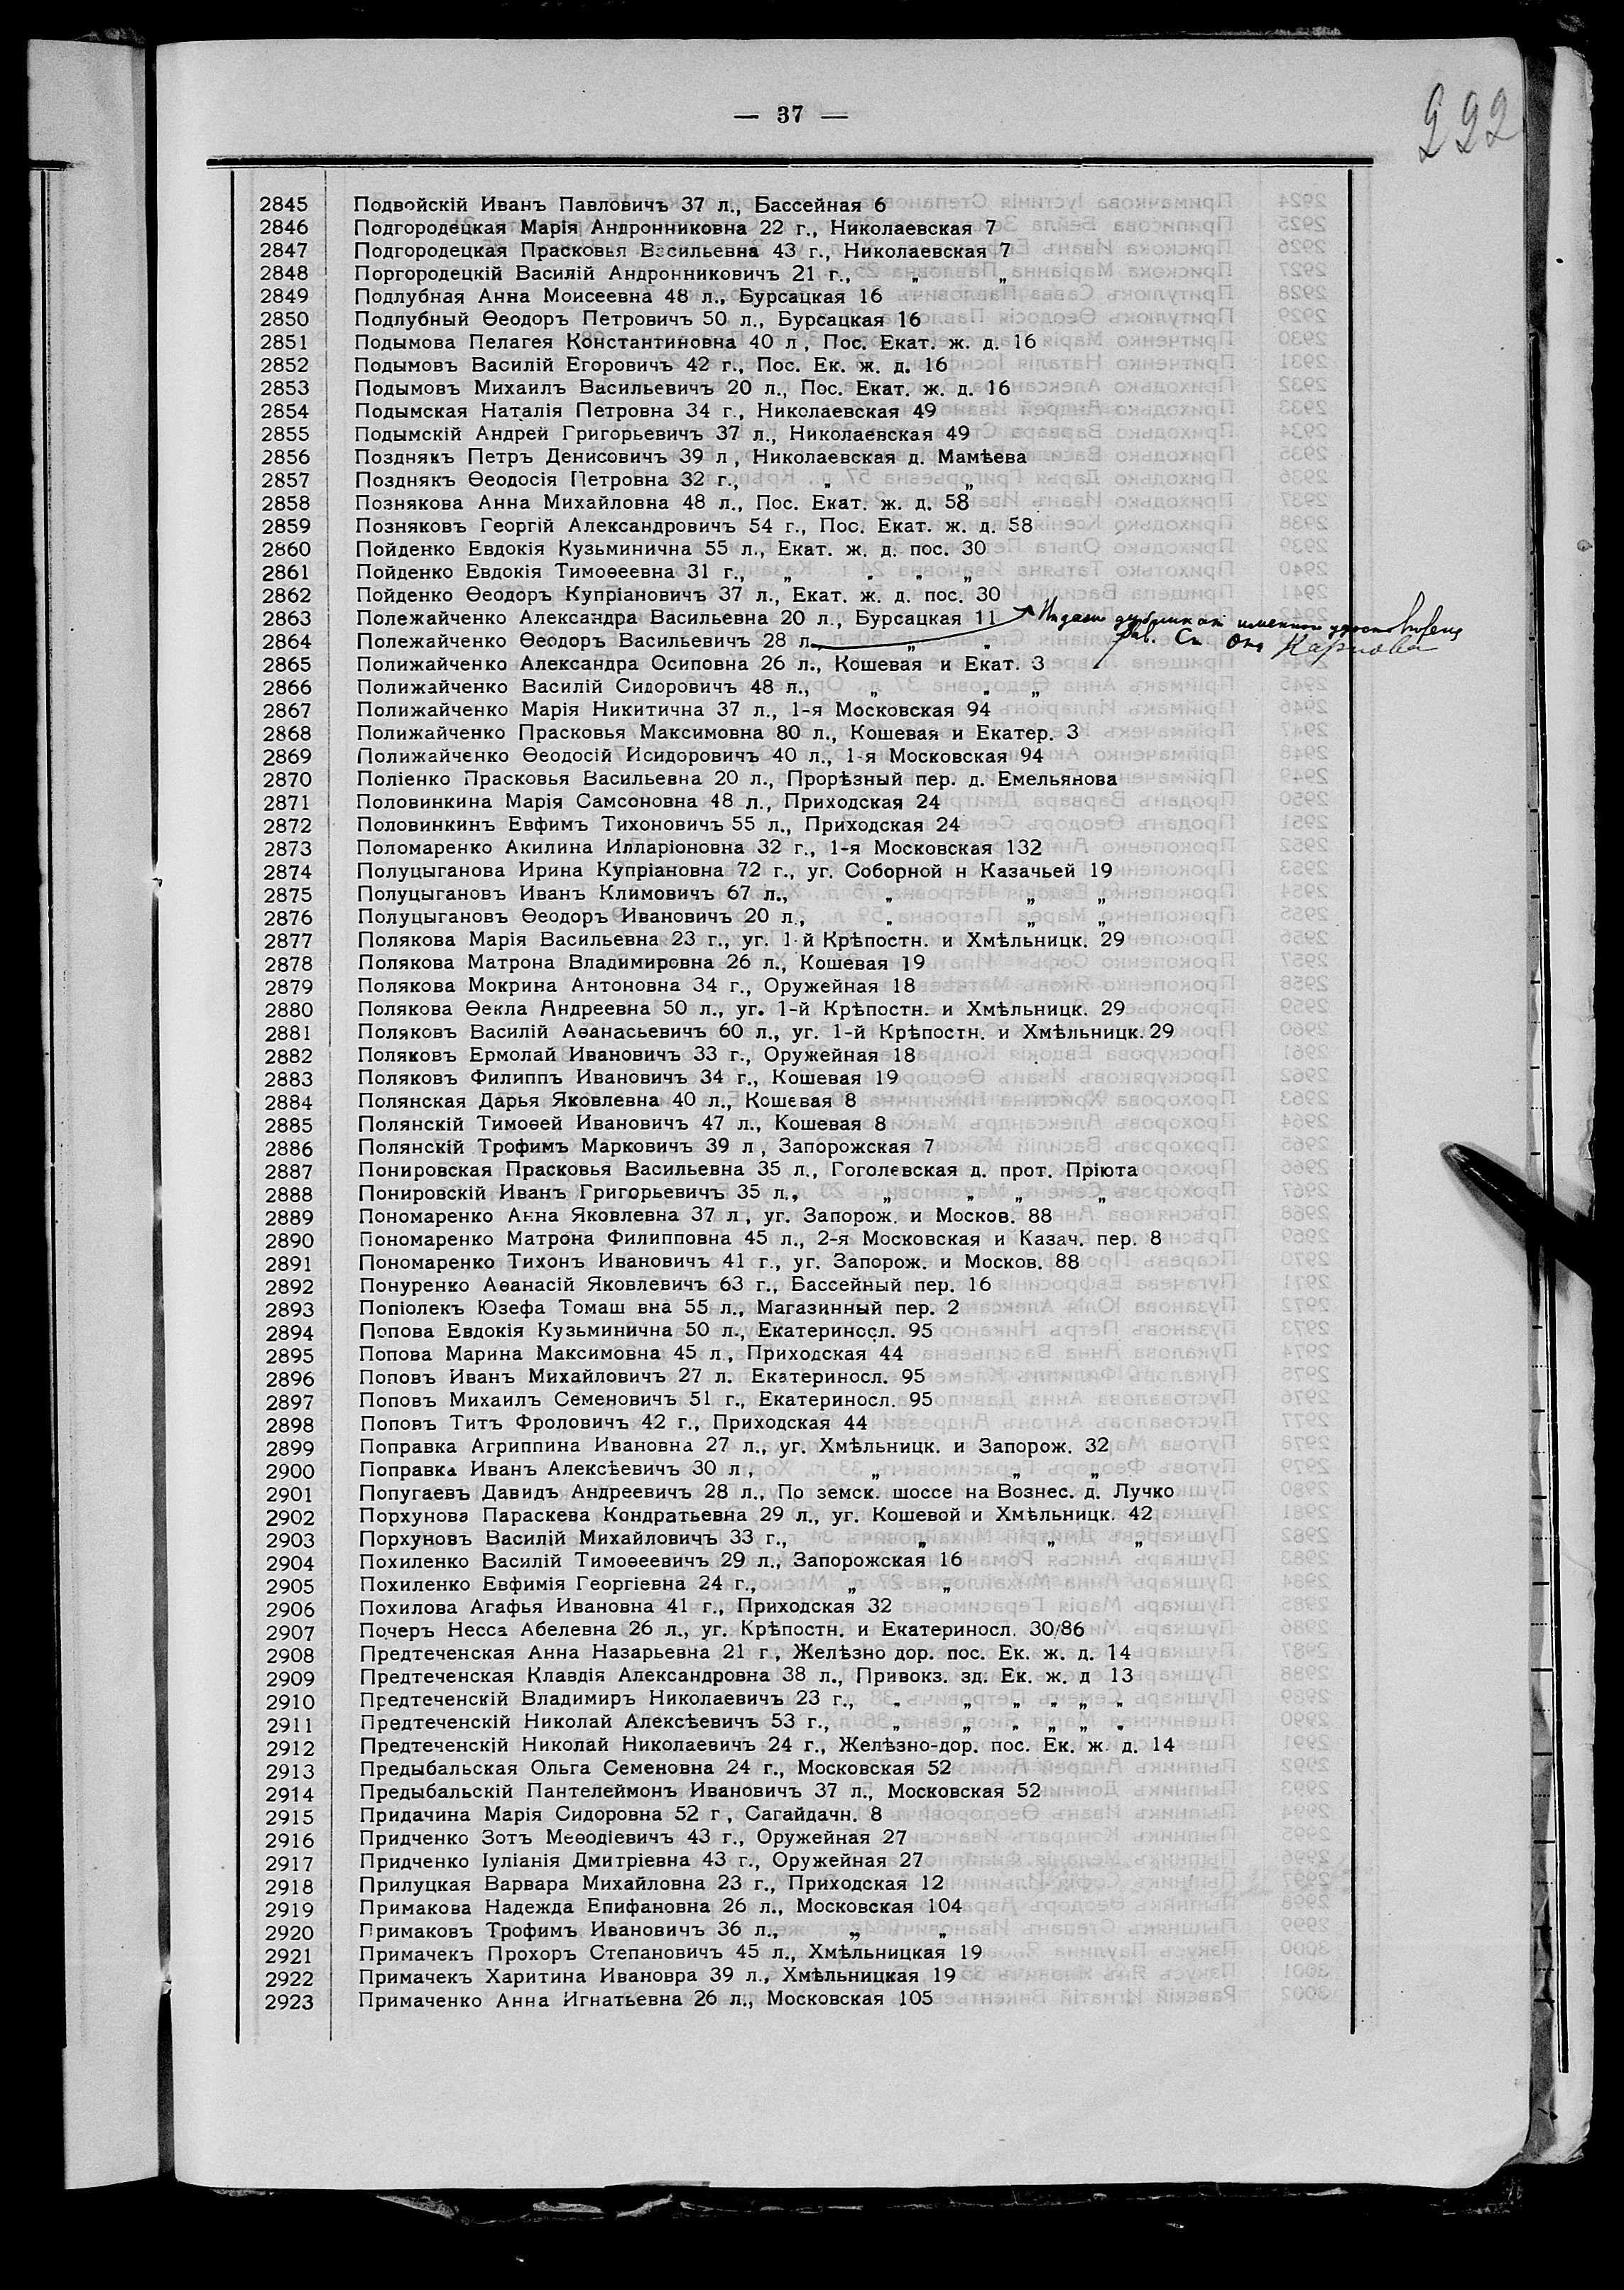 — 37 —
222
2845 Подвойскій Иванъ Павловичъ 37 л., Бассейная 6
2846 Подгородецкая Марія Андронниковна 22 г., Николаевская 7
2847 Подгородецкая Прасковья Васильевна 43 г., Николаевская 7
2848 Поргородецкій Василій Андронниковичъ 21 г., „ „
2849 Подлубная Анна Моисеевна 48 л., Бурсацкая 16
2850 Подлубный Ѳеодоръ Петровичъ 50 л., Бурсацкая 16
2851 Подымова Пелагея Константиновна 40 л , Пос. Екат. ж. д. 16
2852 Подымовъ Василій Егоровичъ 42 г., Пос. Ек. ж. д. 16
2853 Подымовъ Михаилъ Васильевичъ 20 л., Пос. Екат. ж. д. 16
2854 Подымская Наталія Петровна 34 г., Николаевская 49
2855 Подымскій Андрей Григорьевичъ 37 л., Николаевская 49
2856 Позднякъ Петръ Денисовичъ 39 л , Николаевская д. Мамѣева
2857 Позднякъ Ѳеодосія Петровна 32 г., „ „
2858 Познякова Анна Михайловна 48 л., Пос. Екат. ж. д. 58
2859 Позняковъ Георгій Александровичъ 54 г., Пос. Екат. ж. д. 58
2860 Пойденко Евдокія Кузьминична 55 л., Екат. ж. д. пос. 30
2861 Пойденко Евдокія Тимоѳеевна 31 г., „ „ „ „
2862 Пойденко Ѳеодоръ Купріановичъ 37 л., Екат. ж. д. пос. 30
2863 Полежайченко Александра Васильевна 20 л., Бурсацкая 11
2864 Полежайченко Ѳеодоръ Васильевичъ 28 л., „ „
2865 Полижайченко Александра Осиповна 26 л., Кошевая и Екат. 3
2866 Полижайченко Василій Сидоровичъ 48 л., „ „ „
2867 Полижайченко Марія Никитична 37 л., 1-я Московская 94
2868 Полижайченко Прасковья Максимовна 80 л., Кошевая и Екатер. 3
2869 Полижайченко Ѳеодосій Исидоровичъ 40 л., 1-я Московская 94
2870 Поліенко Прасковья Васильевна 20 л., Прорѣзный пер. д. Емельянова
2871 Половинкина Марія Самсоновна 48 л., Приходская 24
2872 Половинкинъ Евфимъ Тихоновичъ 55 л., Приходская 24
2873 Поломаренко Акилина Илларіоновна 32 г., 1-я Московская 132
2874 Полуцыганова Ирина Купріановна 72 г., уг. Соборной н Казачьей 19
2875 Полуцыгановъ Иванъ Климовичъ 67 л., „ „ „
2876 Полуцыгановъ Ѳеодоръ Ивановичъ 20 л., „ „ „
2877 Полякова Марія Васильевна 23 г., уг. 1-й Крѣпостн. и Хмѣльницк. 29
2878 Полякова Матрона Владимировна 26 л., Кошевая 19
2879 Полякова Мокрина Антоновна 34 г., Оружейная 18
2880 Полякова Ѳекла Андреевна 50 л., уг. 1-й Крѣпостн. и Хмѣльницк. 29
2881 Поляковъ Василій Аѳанасьевичъ 60 л., уг. 1-й Крѣпостн. и Хмѣльницк. 29
2882 Поляковъ Ермолай Ивановичъ 33 г., Оружейная 18
2883 Поляковъ Филиппъ Ивановичъ 34 г., Кошевая 19
2884 Полянская Дарья Яковлевна 40 л., Кошевая 8
2885 Полянскій Тимоѳей Ивановичъ 47 л., Кошевая 8
2886 Полянскій Трофимъ Марковичъ 39 л , Запорожская 7
2887 Понировская Прасковья Васильевна 35 л., Гоголевская д. прот. Пріюта
2888 Понировскій Иванъ Григорьевичъ 35 л., „ „ „ „
2889 Пономаренко Анна Яковлевна 37 л , уг. Запорож. и Москов. 88
2890 Пономаренко Матрона Филипповна 45 л., 2-я Московская и Казач. пер. 8
2891 Пономаренко Тихонъ Ивановичъ 41 г., уг. Запорож. и Москов. 88
2892 Понуренко Аѳанасій Яковлевичъ 63 г., Бассейный пер. 16
2893 Попіолекъ Юзефа Томаш вна 55 л., Магазинный пер. 2
2894 Попова Евдокія Кузьминична 50 л., Екатериносл. 95
2895 Попова Марина Максимовна 45 л , Приходская 44
2896 Поповъ Иванъ Михайловичъ 27 л. Екатериносл. 95
2897 Поповъ Михаилъ Семеновичъ 51 г., Екатериносл. 95
2898 Поповъ Титъ Фроловичъ 42 г., Приходская 44
2899 Поправка Агриппина Ивановна 27 л., уг. Хмѣльницк. и Запорож. 32
2900 Поправка Иванъ Алексѣевичъ 30 л , „ „ „
2901 Попугаевъ Давидъ Андреевичъ 28 л., По земск. шоссе на Вознес. д. Лучко
2902 Порхунова Параскева Кондратьевна 29 л., уг. Кошевой и Хмѣльницк. 42
2903 Порхуновъ Василій Михайловичъ 33 г., „ „ „
2904 Похиленко Василій Тимоѳеевичъ 29 л., Запорожская 16
2905 Похиленко Евфимія Георгіевна 24 г., „ „
2906 Похилова Агафья Ивановна 41 г., Приходская 32
2907 Почеръ Несса Абелевна 26 л., уг. Крѣпостн. и Екатериносл. 30/86
2908 Предтеченская Анна Назарьевна 21 г , Желѣзно дор. пос. Ек. ж. д. 14
2909 Предтеченская Клавдія Александровна 38 л., Привокз. зд. Ек. ж. д 13
2910 Предтеченскій Владимиръ Николаевичъ 23 г., „ „ „ „ „ „
2911 Предтеченскій Николай Алексѣевичъ 53 г., „ „ „ „ „ „
2912 Предтеченскій Николай Николаевичъ 24 г., Желѣзно-дор. пос. Ек. ж. д. 14
2913 Предыбальская Ольга Семеновна 24 г., Московская 52
2914 Предыбальскій Пантелеймонъ Ивановичъ 37 л., Московская 52
2915 Придачина Марія Сидоровна 52 г , Сагайдачн. 8
2916 Придченко Зотъ Меѳодіевичъ 43 г., Оружейная 27
2917 Придченко Іуліанія Дмитріевна 43 г., Оружейная 27
2918 Прилуцкая Варвара Михайловна 23 г., Приходская 12
2919 Примакова Надежда Епифановна 26 л., Московская 104
2920 Примаковъ Трофимъ Ивановичъ 36 л., „ „
2921 Примачекъ Прохоръ Степановичъ 45 л., Хмѣльницкая 19
2922 Примачекъ Харитина Ивановра 39 л., Хмѣльницкая 19
2923 Примаченко Анна Игнатьевна 26 л., Московская 105